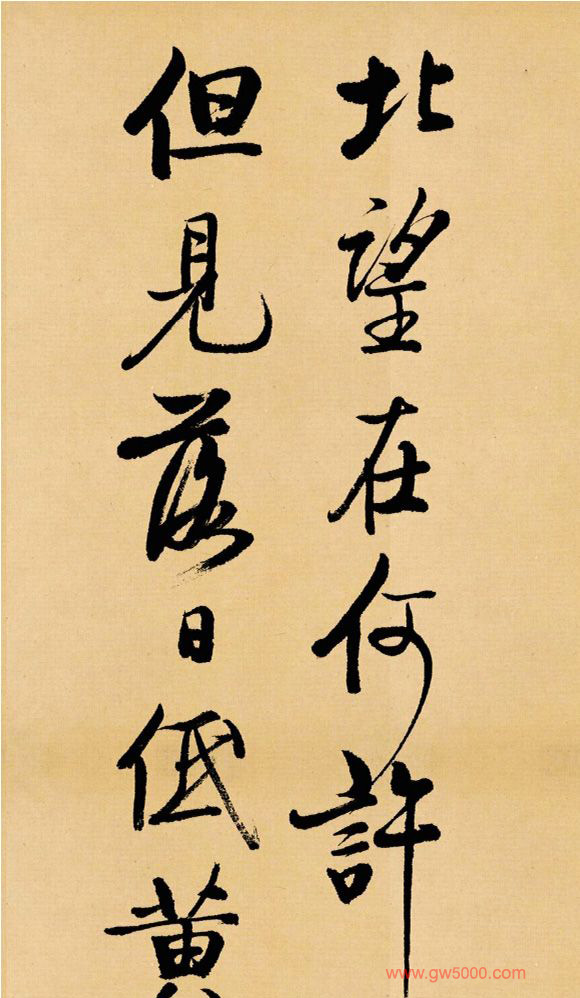 北望在何許
但見落日低黃
www.gw5000.com